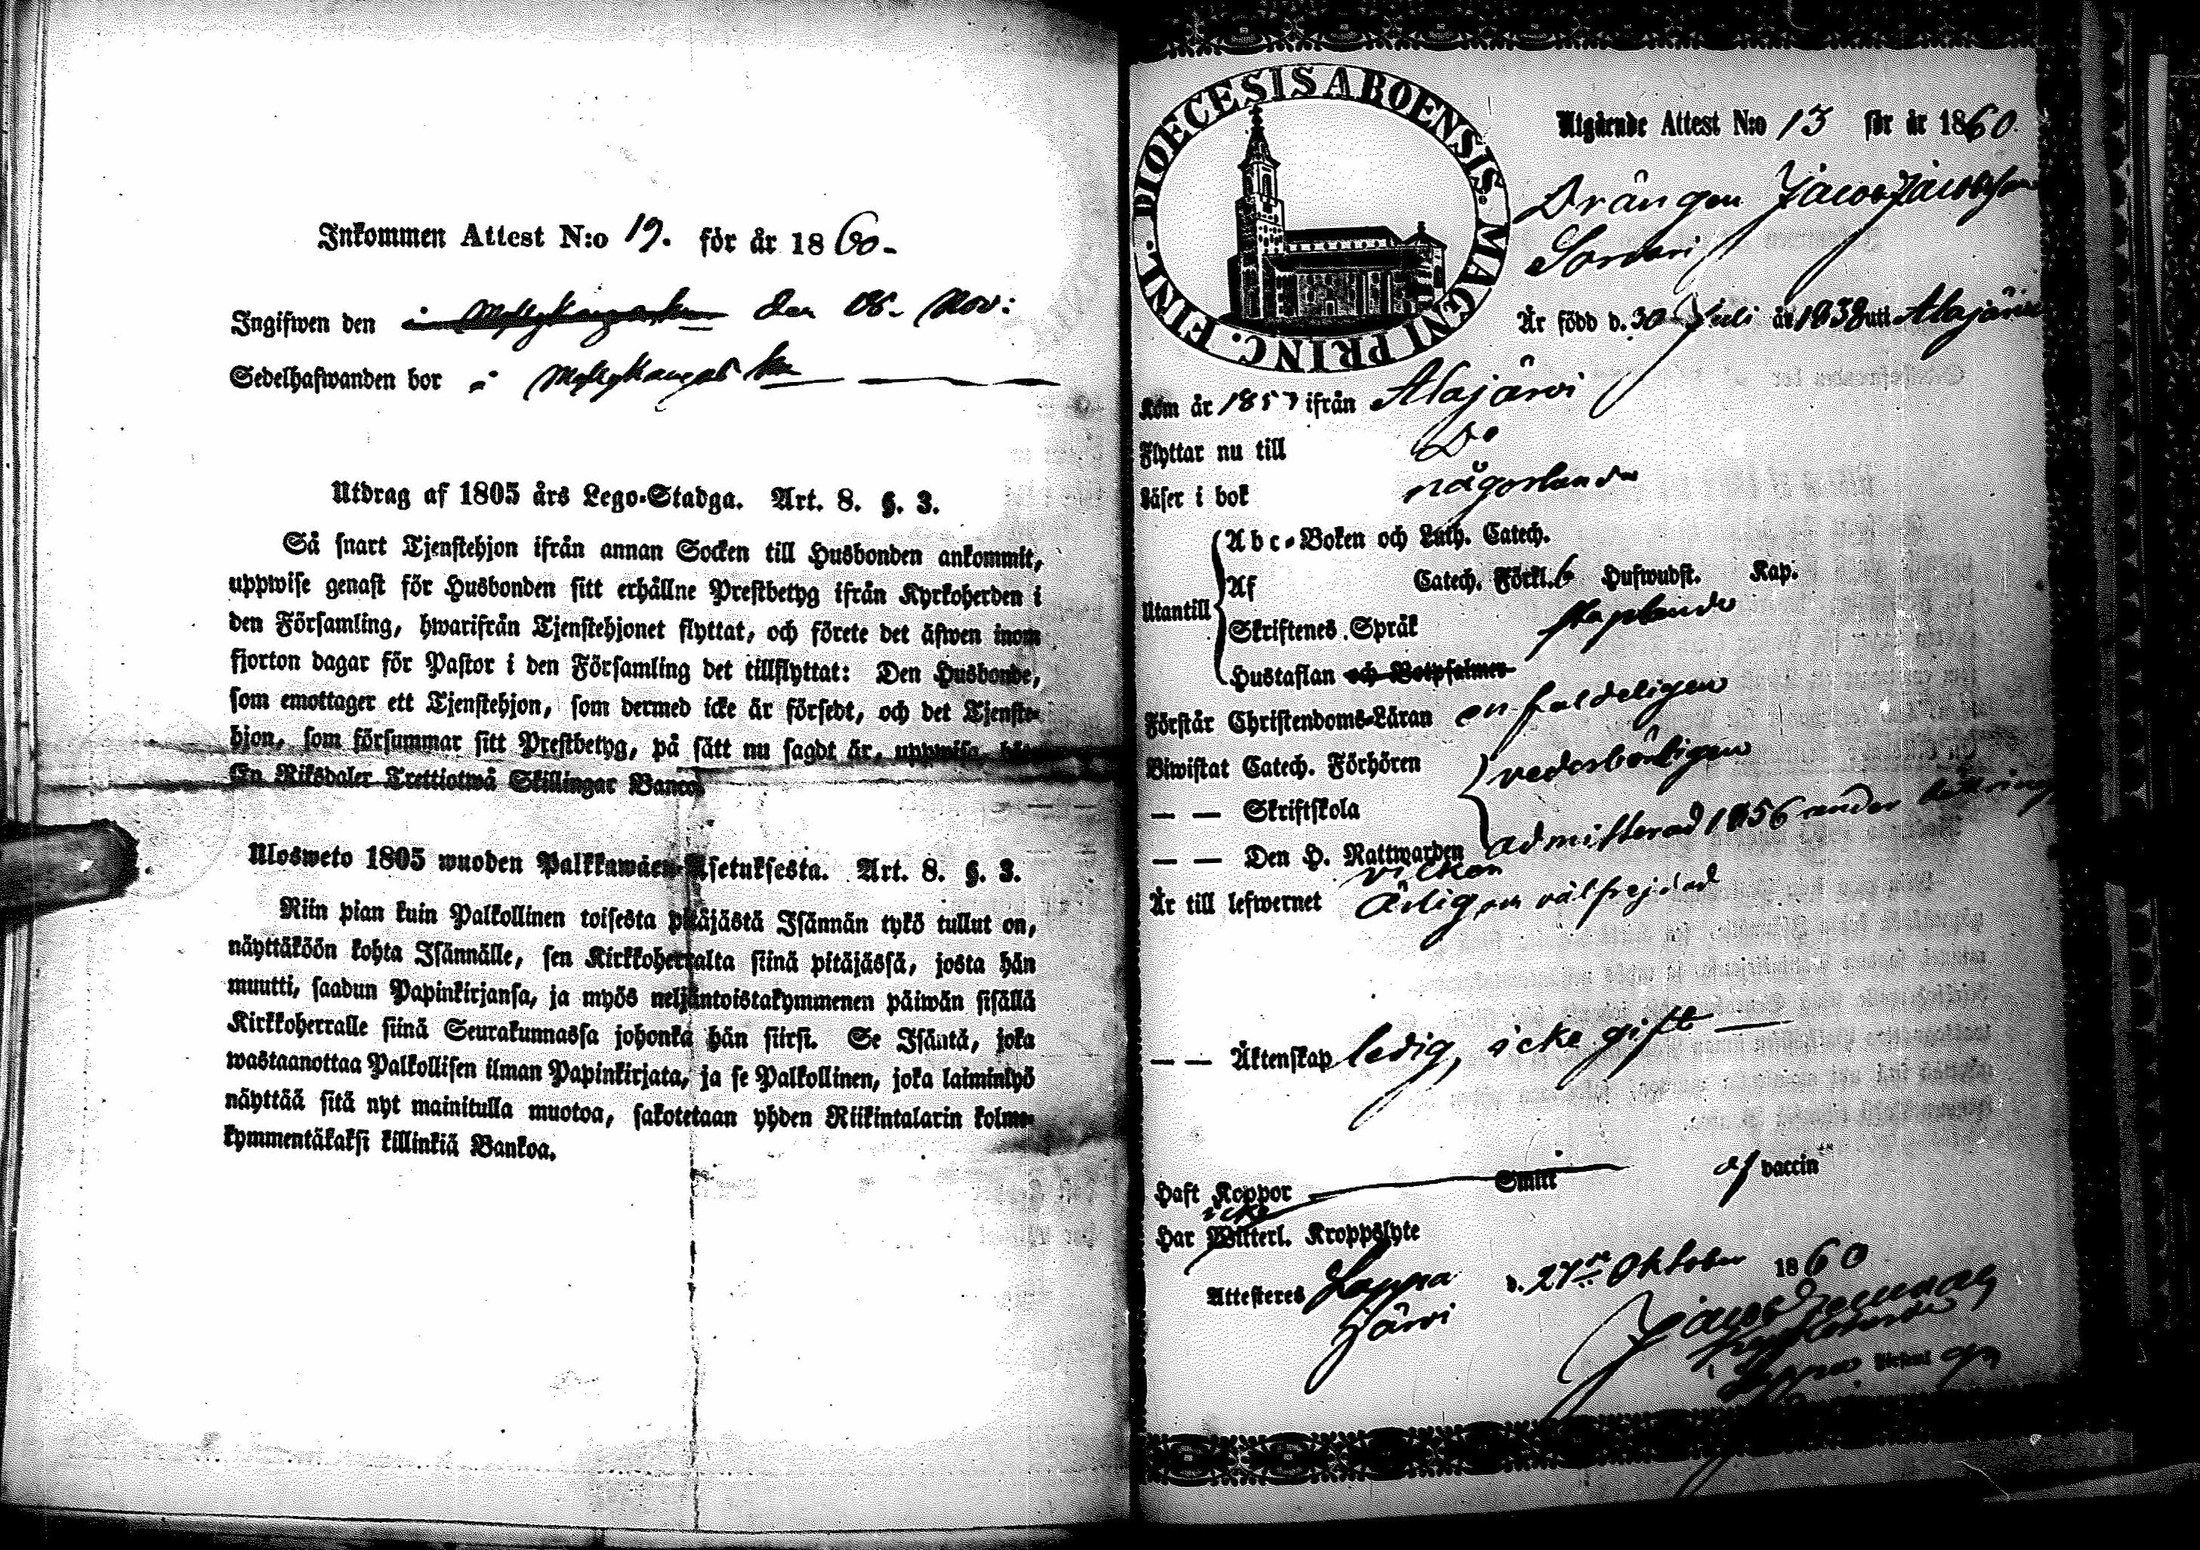 Inkommen Attest N:o 19. för år 1860-
Ingifwen den den 18. Nov:
Sedelhafwanden bor i Myllykangas
Utdrag af 1805 års Lego-Stadga. Art. 8. §. 3.
Så snart Tjenstehjon ifrån annan Socken till Husbonden ankommit,
uppwise genast för Husbonden sitt erhållne Prestbetyg ifrån Kyrkoherden i
den Församling, hwarifrån Tjenstehjonet flyttat, och förete det äfwen inom
fjorton dagar för Pastor i den Församling det tillflyttat: Den Husbonde,
som emottager ett Tjenstehjon, som dermed icke är försedt, och det Tjenste-
hjon, som försummar sitt Prestbetyg, på sätt nu sagdt är, uppwisa,
En Riksdaler Trettiotwå Skillingar Banco.
Ulosweto 1805 wuoden Palkkawäen-Asetuksesta. Art. 8. §. 3.
Niin pian kuin Palkollinen toisesta pitäjästä Isännän tykö tullut on,
näyttäköön kohta Isännälle, sen Kirkkoherralta siinä pitäjässä, josta hän
muutti, saadun Papinkirjansa, ja myös neljäntoistakymmenen päiwän sisällä
Kirkkoherralle siinä Seurakunnassa johonka hän siirsi. Se Isäntä, joka
wastaanottaa Palkollisen ilman Papinkirjata, ja se Palkollinen, joka laiminlyö
näyttää sitä nyt mainitulla muotoa, sakotetaan yhden Riikintalarin kolme-
kymmentäkaksi killinkiä Bankoa.
DIOECESIS ABOENSIS. MAGNI PRINC. FINL.
Utgående Attest N:o 13 för år 1860.
Drängen Jacob Jacobsson
Är född d. 30 Juli år 1838 uti Alajärvi
Kom år 1857 ifrån Alajärvi
Flyttar nu till Do
Läser i bok någorlunda
Utantill
Abc-Boken och Luth. Catech.
Af Catech. Förkl. 6 Hufwudst. Kap.
Skriftenes Språk staplande
Hustaflan och Botpsalmer
Förstår Christendoms-Läran enfaldeligen
Biwistat Catech. Förhören vederbörligen
— — Skriftskola
— — Den H. Nattwarden admitterad 1856 under
vilkor
Är till lefwernet ärlig, en välfrejdad
— — Äktenskap ledig, icke gift —
Haft Koppor Smitt af vaccin
icke
Har Witterl. Kroppslyte
Attesteres Lappa d. 27de Oktober 1860
järvi
Jacob